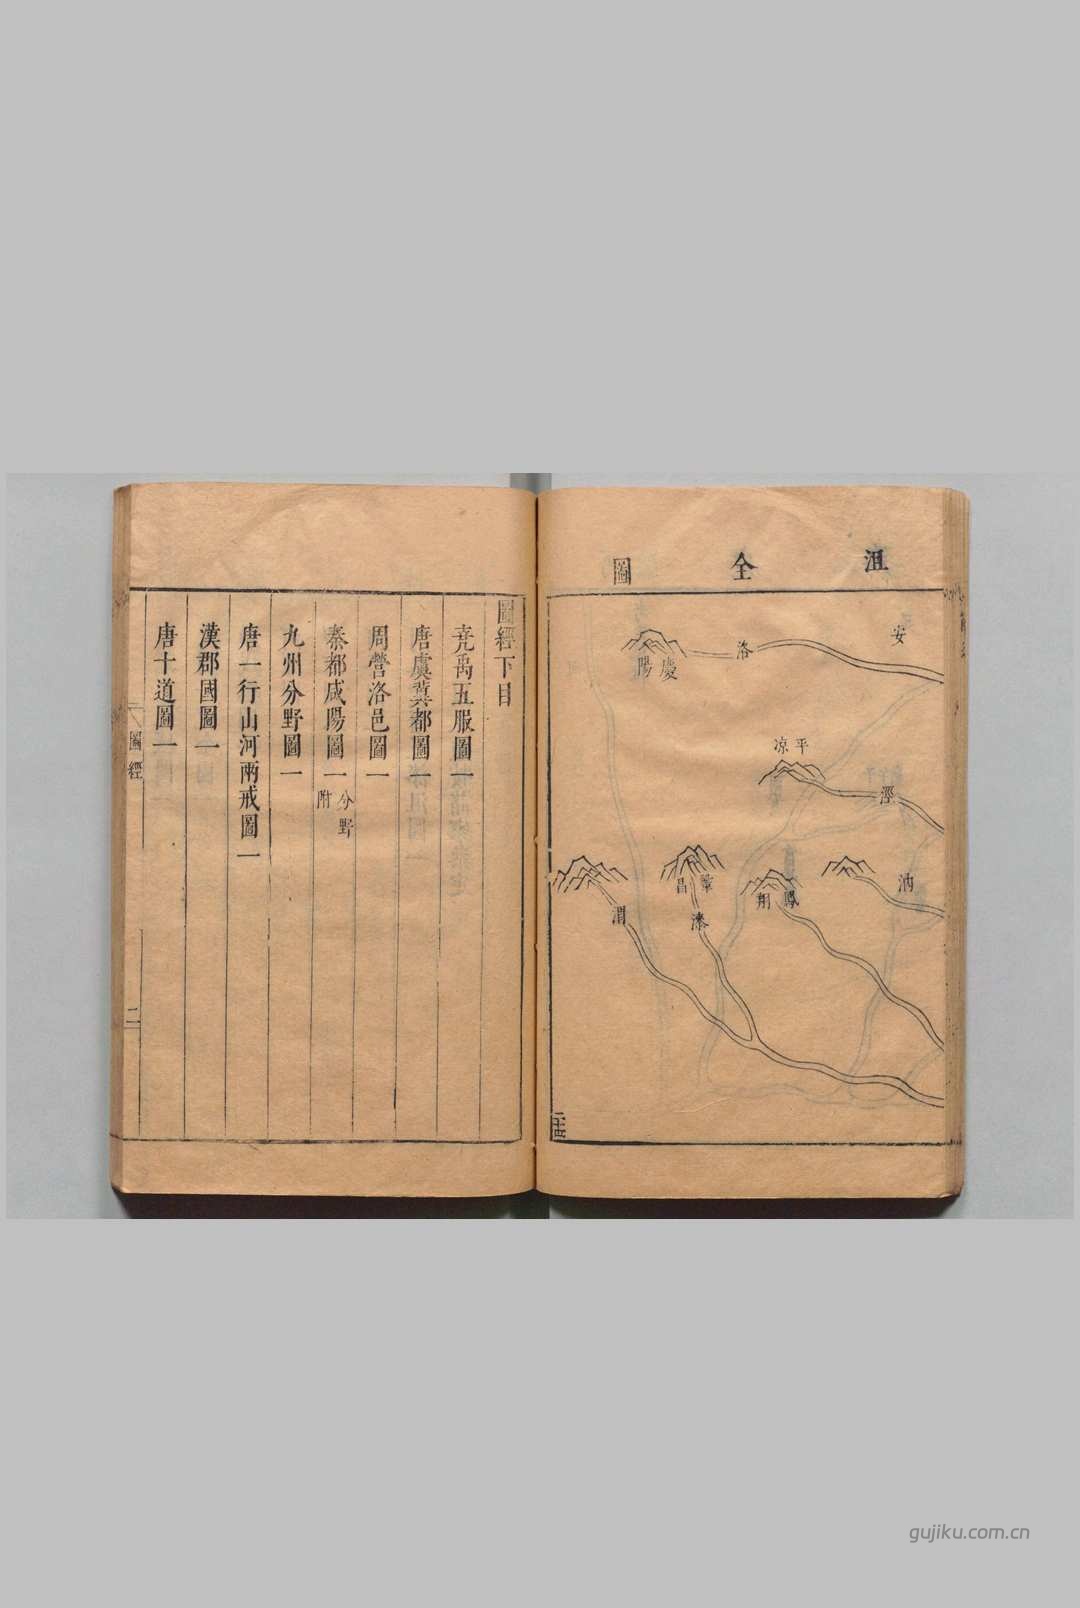 沮全圖
安
洛
慶陽
平凉
涇
汭
鳳翔
鞏昌
漆
渭
二十四
圖經下目
堯禹五服圖一
唐虞冀都圖一
周營洛邑圖一
秦都咸陽圖一 分野附
九州分野圖一
唐一行山河兩戒圖一
漢郡國圖一
唐十道圖一
圖經
二
gujiku.com.cn